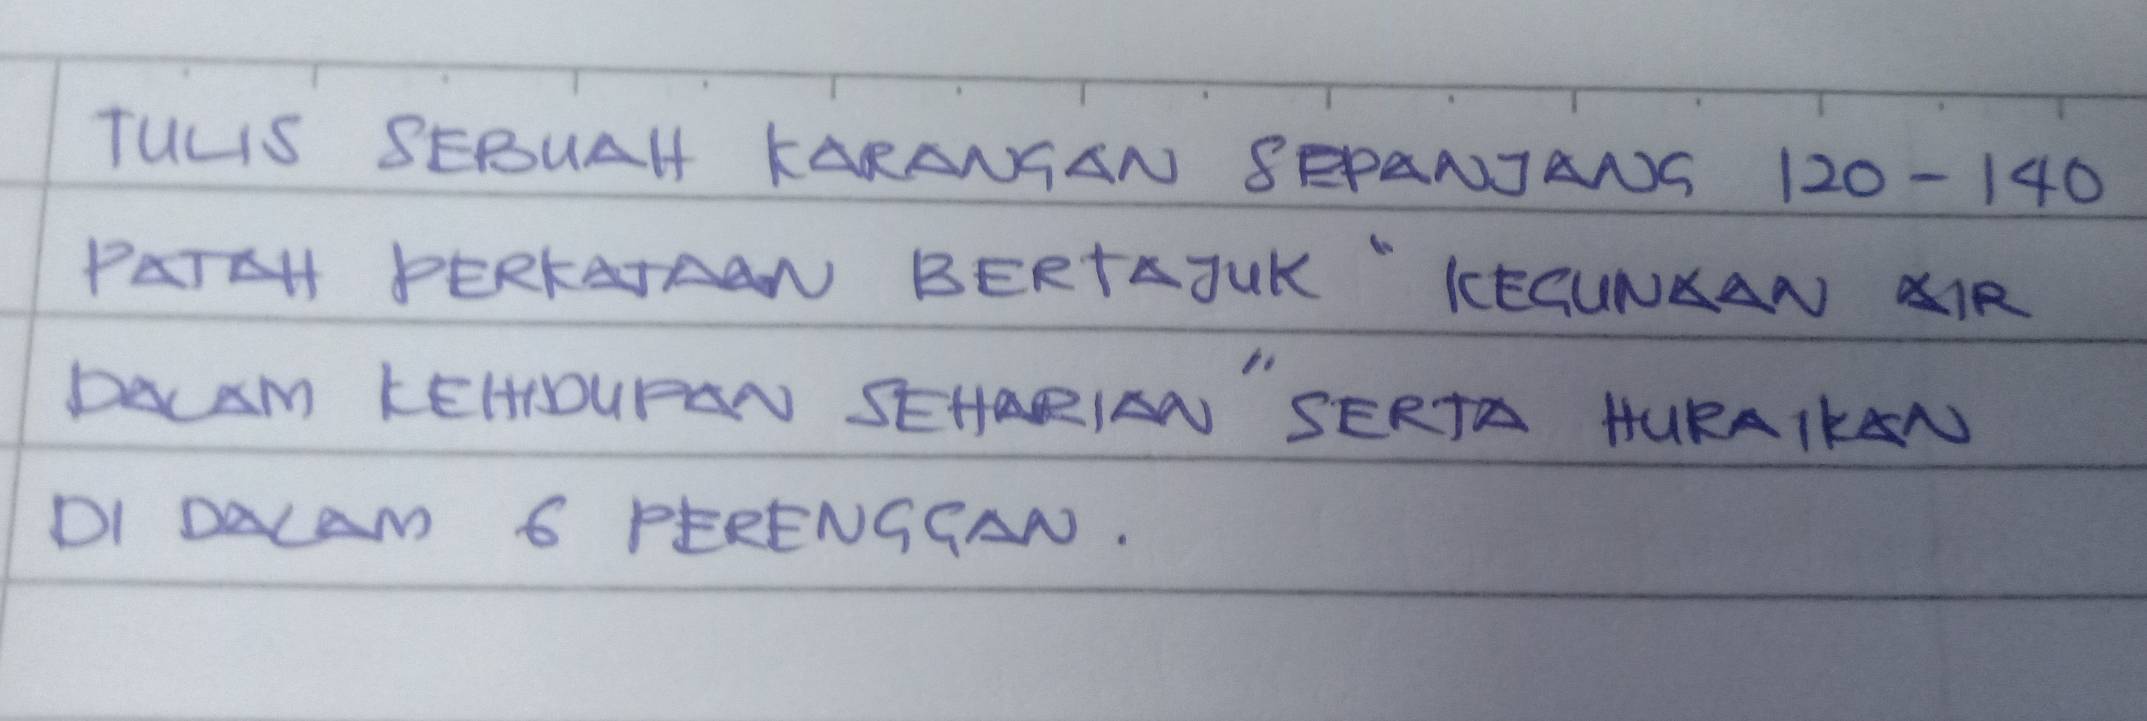 TULIS SEBUAH KARANGAN SEPANJANG 120 - 140
PATAH PERKATAAN BERTAJUK "KEGUNAAN AIR
DALAM KEHIDUPAN SEHARIAN" SERTA HURAIKAN
DI DALAM 6 PERENGGAN.